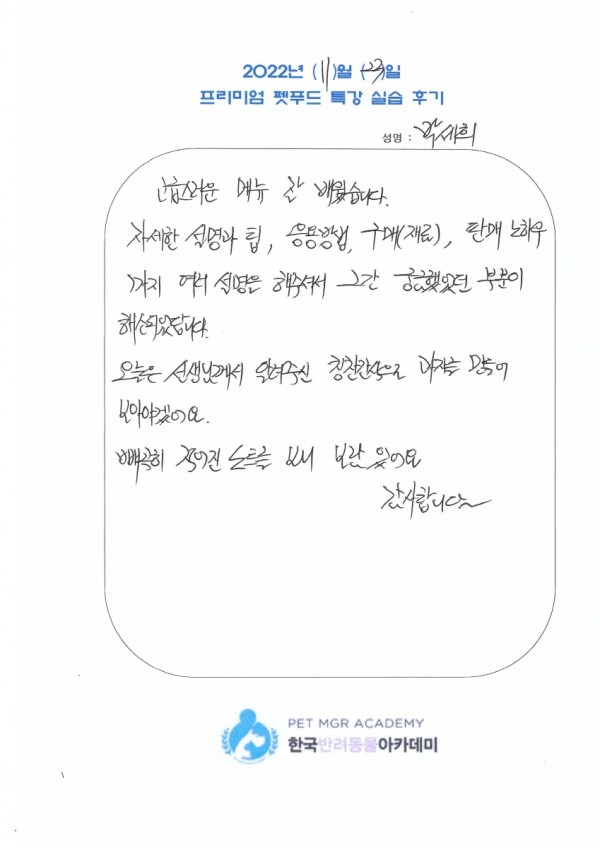 2022년 (11)월 23일
프리미엄 펫푸드 특강 실습 후기
성명 : 박세희
고급스러운 메뉴 잘 배웠습니다.
자세한 설명과 팁, 응용방법, 구매(재료), 판매 노하우
까지 여러 설명을 해주셔서 그간 궁금했었던 부분이
해소되었답니다.
오늘은 선생님께서 알려주신 칭찬간식으로 만들어
보아야겠어요.
빼곡히 적어진 노트를 보니 보람 있어요
감사합니다~
PET MGR ACADEMY
한국반려동물아카데미